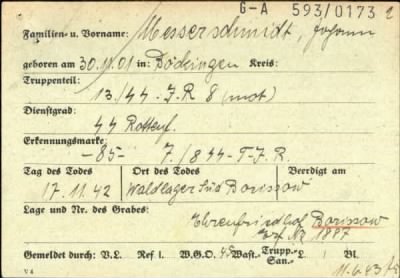 G-A 593/0173 2
Familien- u. Vorname: Messerschmidt, Johann
geboren am 30.11.01 in: Böckingen Kreis:
Truppenteil:
13./44 - J.R 8 (mot)
Dienstgrad:
44 Rottenf.
Erkennungsmarke:
-85- 7./8 44-T-J.R.
Tag des Todes Ort des Todes Beerdigt am
17.11.42 Waldlager Süd Borissow
Lage und Nr. des Grabes:
Ehrenfriedhof Borissow
Grf. Nr 1887
Gemeldet durch: V.L. Ref I. W.G.O. Wast. Trupp. Bl.
San.
V 4 11.6.43